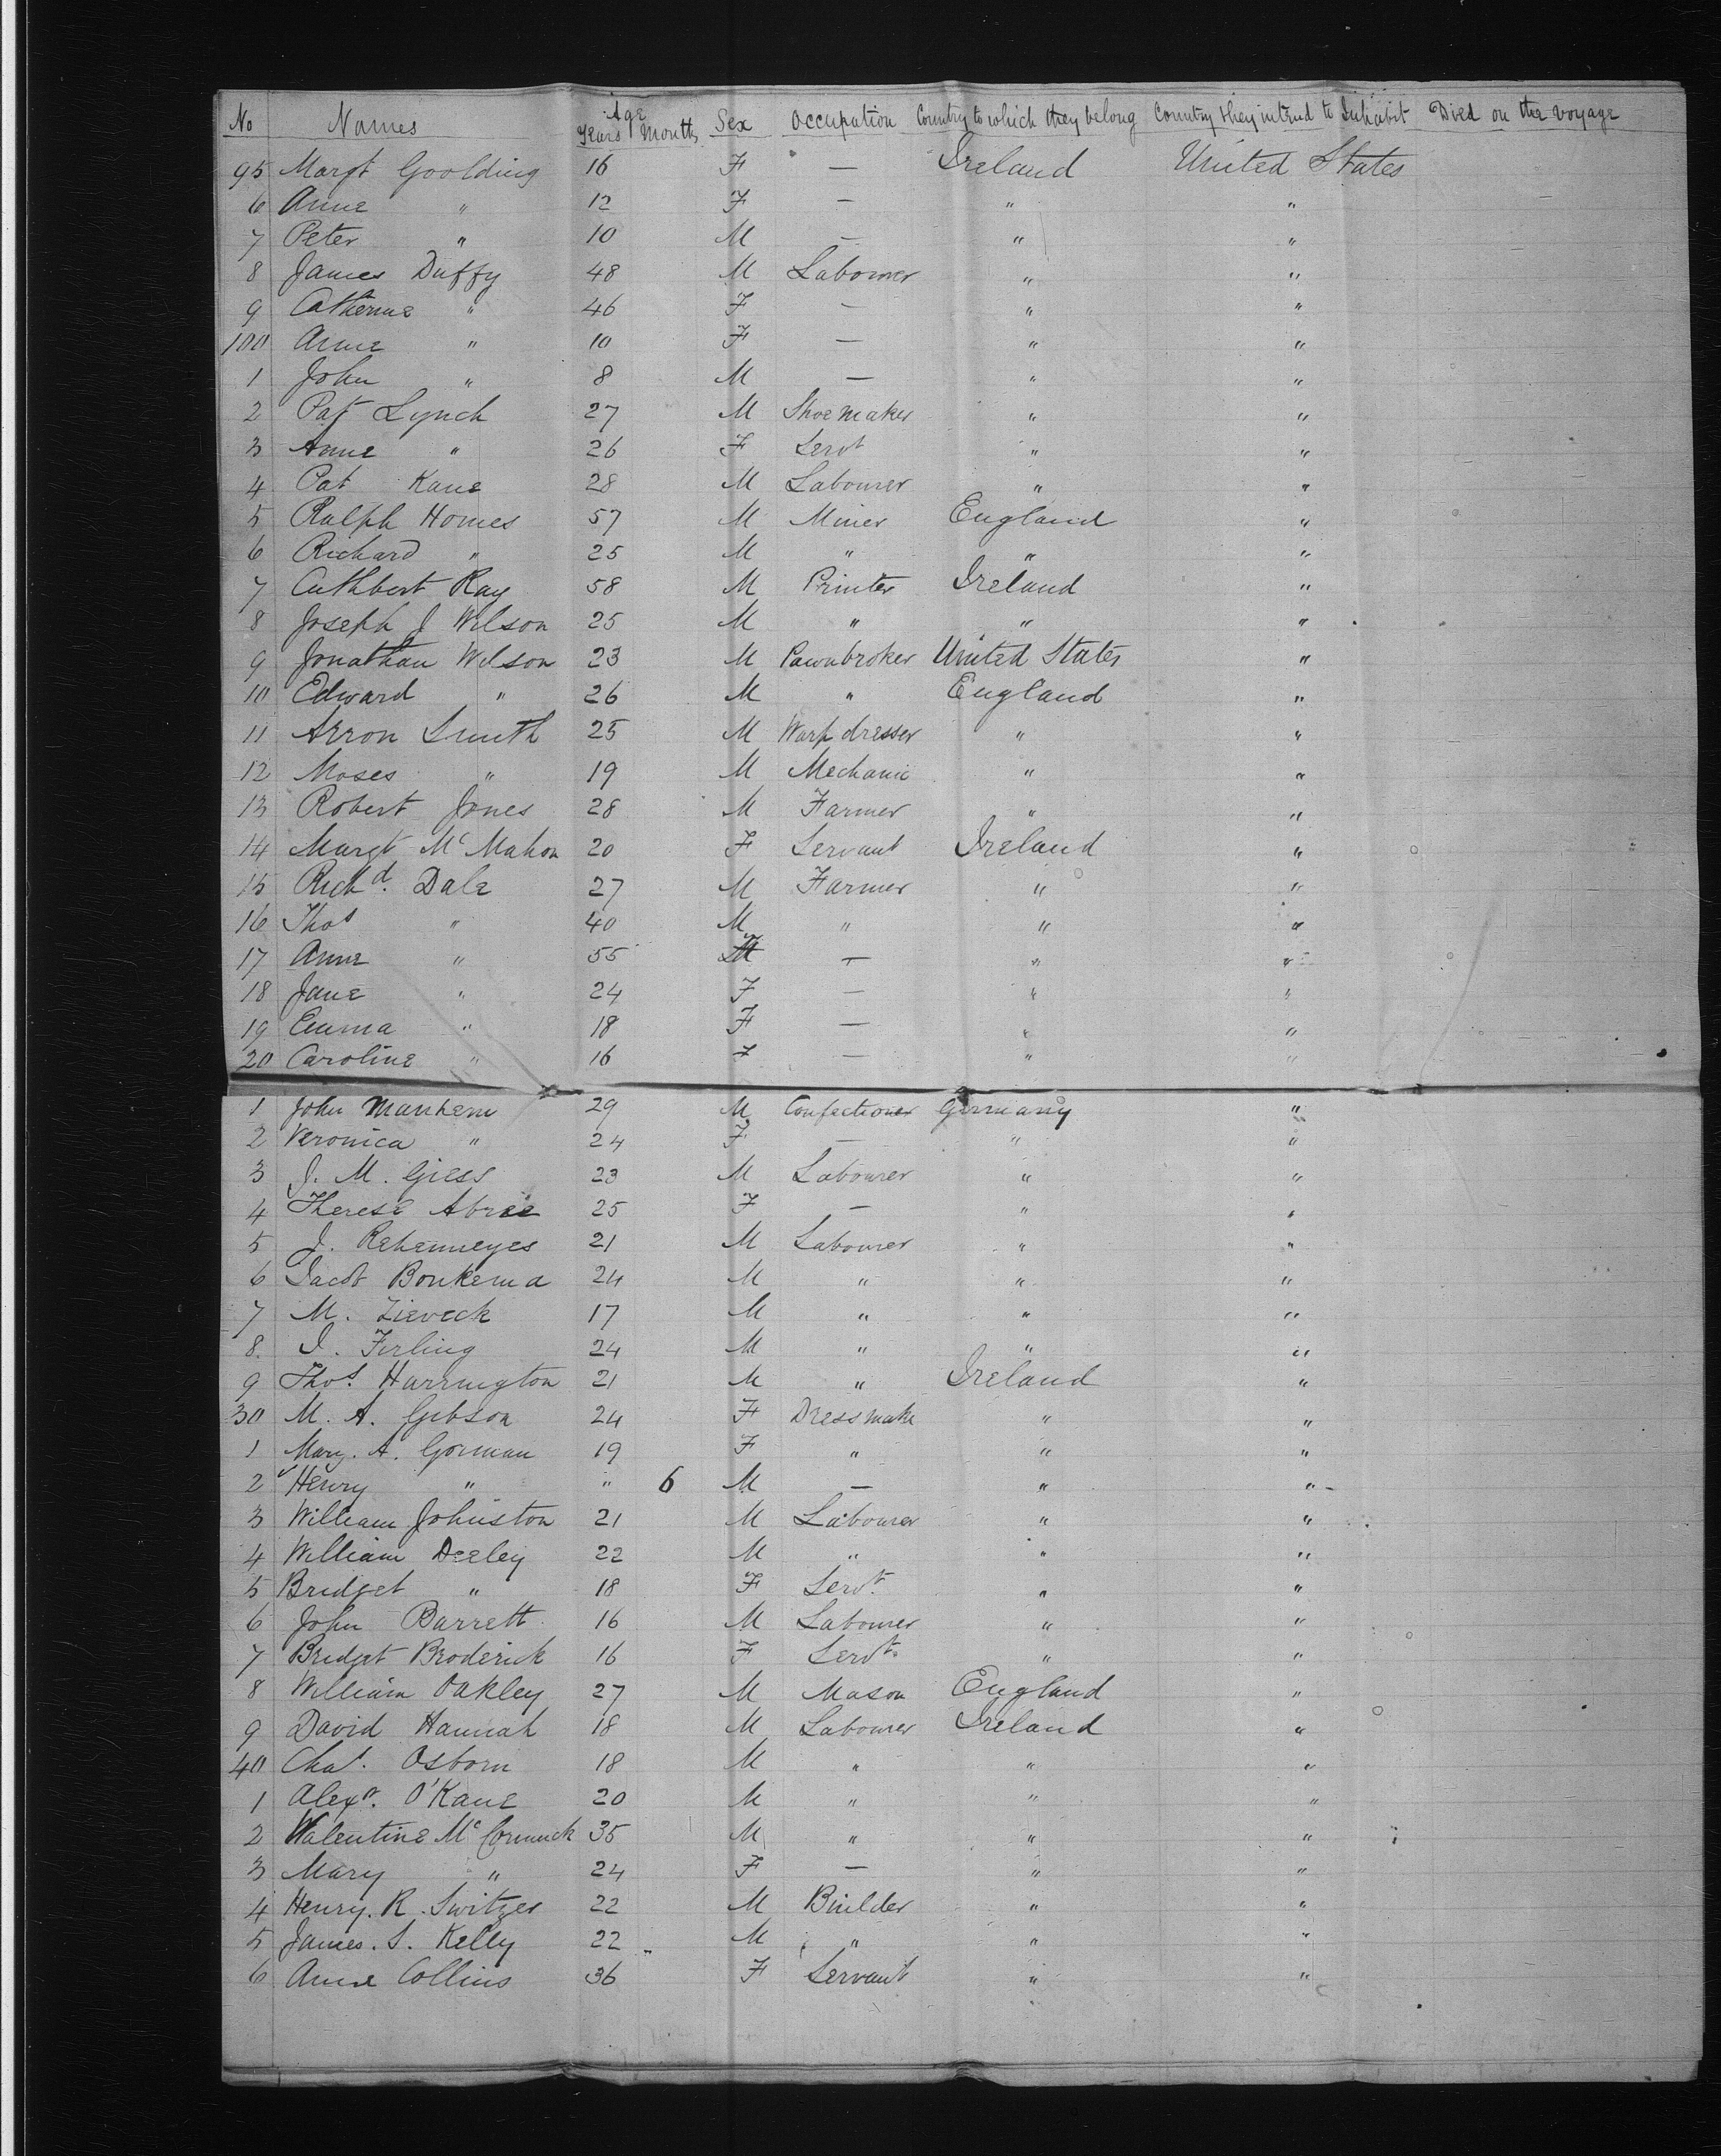 No Names Age Years Months Sex Occupation Country to which they belong Country they intend to Inhabit Died on the voyage
95 Margt Goolding 16 F — Ireland United States
6 Anne " 12 F — " "
7 Peter " 10 M — " "
8 James Duffy 48 M Labourer " "
9 Catherine " 46 F — " "
100 Anne " 10 F — " "
1 John " 8 M — " "
2 Pat Lynch 27 M Shoemaker " "
3 Anne " 26 F Servt " "
4 Pat Kane 28 M Labourer " "
5 Ralph Homes 57 M Miner England "
6 Richard " 25 M " " "
7 Cuthbert Ray 58 M Printer Ireland "
8 Joseph J Wilson 25 M " " "
9 Jonathan Wilson 23 M Pawnbroker United States "
10 Edward " 26 M " England "
11 Arron Smith 25 M Warp dresser " "
12 Moses " 19 M Mechanic " "
13 Robert Jones 28 M Farmer " "
14 Margt McMahon 20 F Servant Ireland "
15 Richd. Dale 27 M Farmer " "
16 Thos " 40 M " " "
17 Anne " 55 — " "
18 Jane " 24 F — " "
19 Emma " 18 F — " "
20 Caroline " 16 F — " "
1 John Manhem 29 M Confectioner Germany "
2 Veronica " 24 F — " "
3 J. M. Giess 23 M Labourer " "
4 Therese 25 F — " "
5 J. 21 M Labourer " "
6 Jacob Bonkema 24 M " " "
7 M. Zieveck 17 M " " "
8. J. Ferling 24 M " " "
9 Thos. Harrington 21 M " Ireland "
30 M. A. Gibson 24 F Dressmake " "
1 Mary. A. Gorman 19 F " " "
2 Henry " " 6 M — " "
3 William Johnston 21 M Labourer " "
4 William Deeley 22 M " " "
5 Bridget " 18 F Servt. " "
6 John Barrett 16 M Labourer " "
7 Bridget Broderick 16 F Servt. " "
8 William Oakley 27 M Mason England "
9 David Hannah 18 M Labourer Ireland "
40 Chas. Osborn 18 M " " "
1 Alexr. O'Kane 20 M " " "
2 Valentine McCormick 35 M " " "
3 Mary " 24 F — " "
4 Henry. R. Switzer 22 M Builder " "
5 James. S. Kelly 22 M " " "
6 Anne Collins 36 F Servant " "